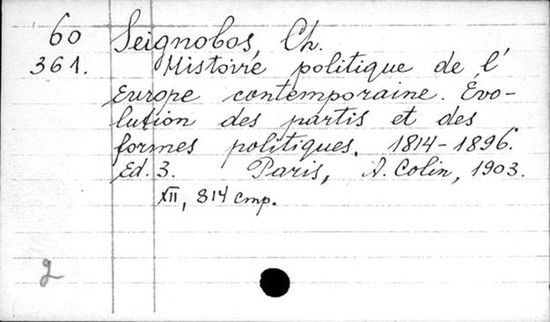 60 Seignobos, Ch.
361. Histoire politique de l'
Europe contemporaine. Évo-
lution des partis et des
formes politiques. 1814-1896.
Ed. 3. Paris, A. Colin, 1903.
XII, 814 стр.
2